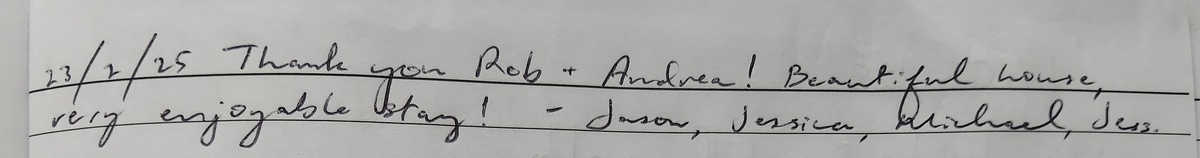 23/2/25 Thank you Rob + Andrea! Beautiful house,
very enjoyable stay! - Jason, Jessica, Michael, Jess.